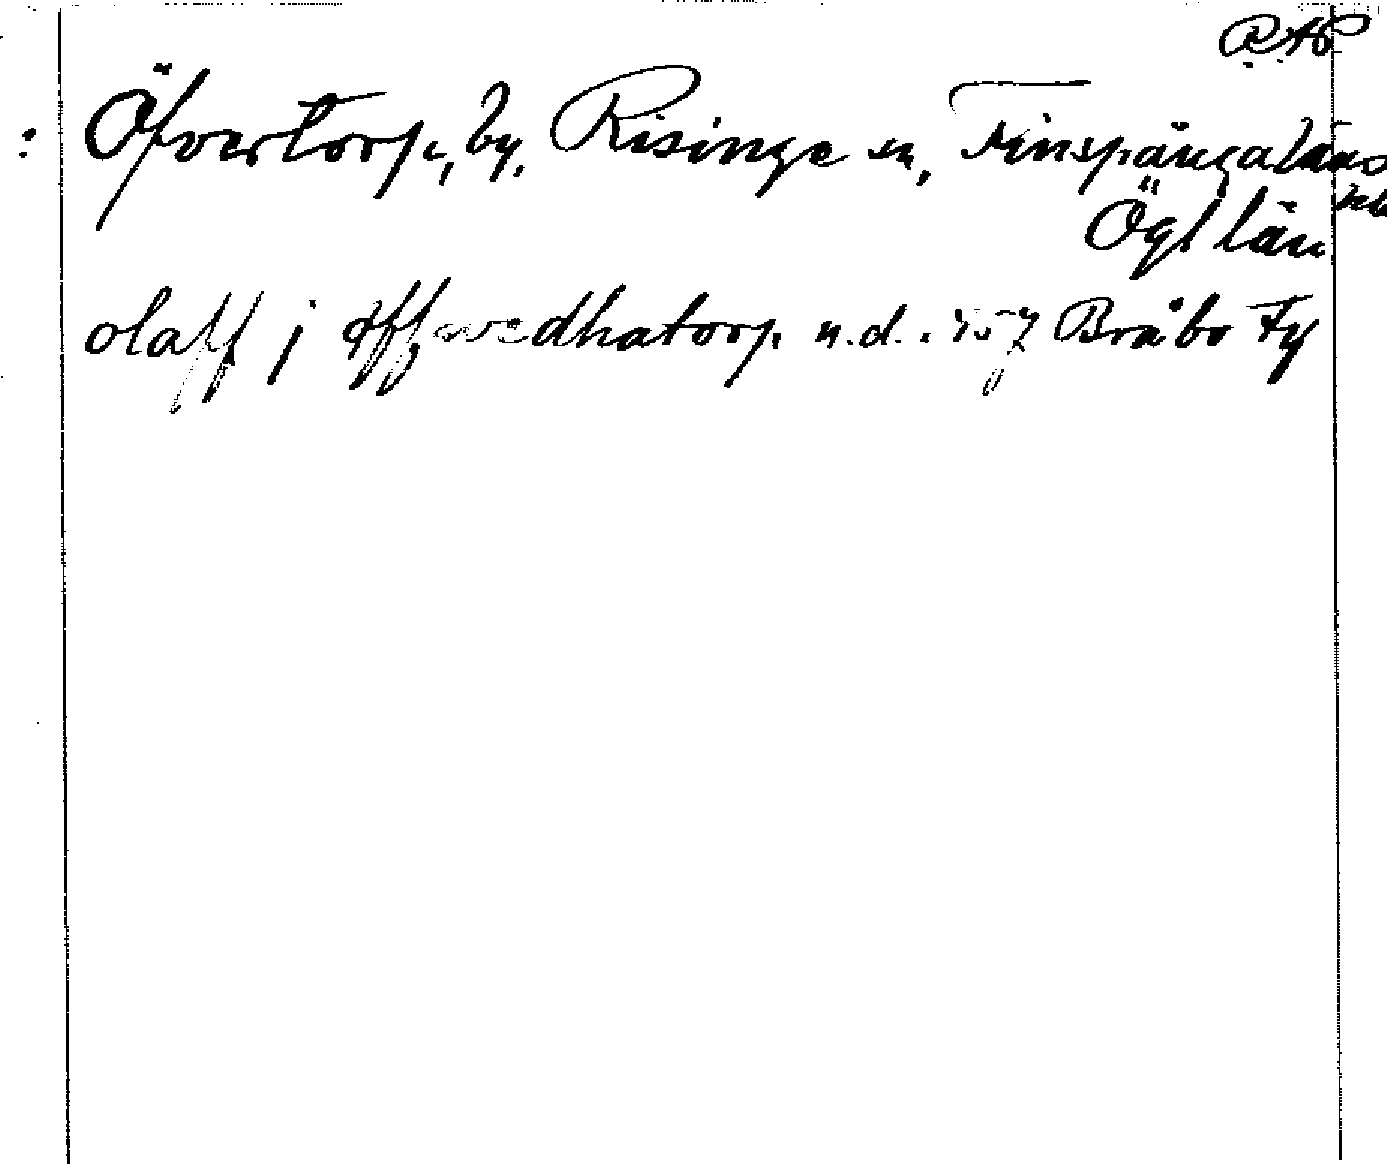 RAP
Öfvertorp, by, Risinge sn, Finspångaläns
hd
Ögl län
olaff j öffwedhatorp n.d. 157 Bråbo Fg